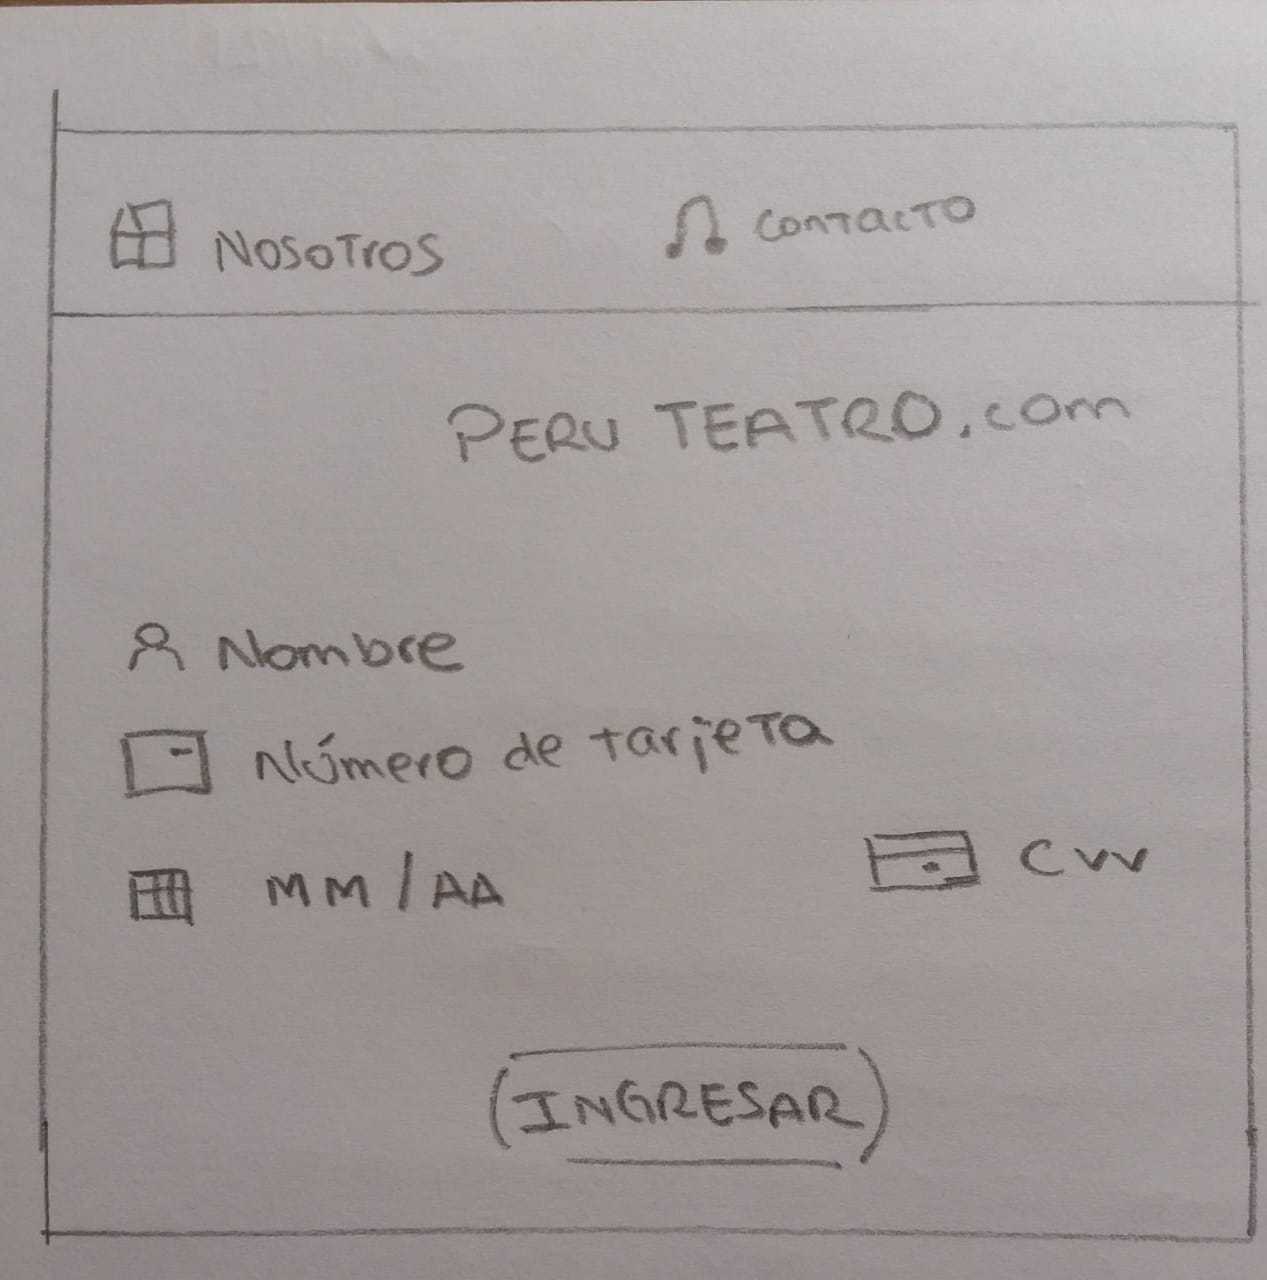 NOSOTROS CONTACTO
PERU TEATRO.com
Nombre
Número de tarjeta
MM/AA CVV
INGRESAR